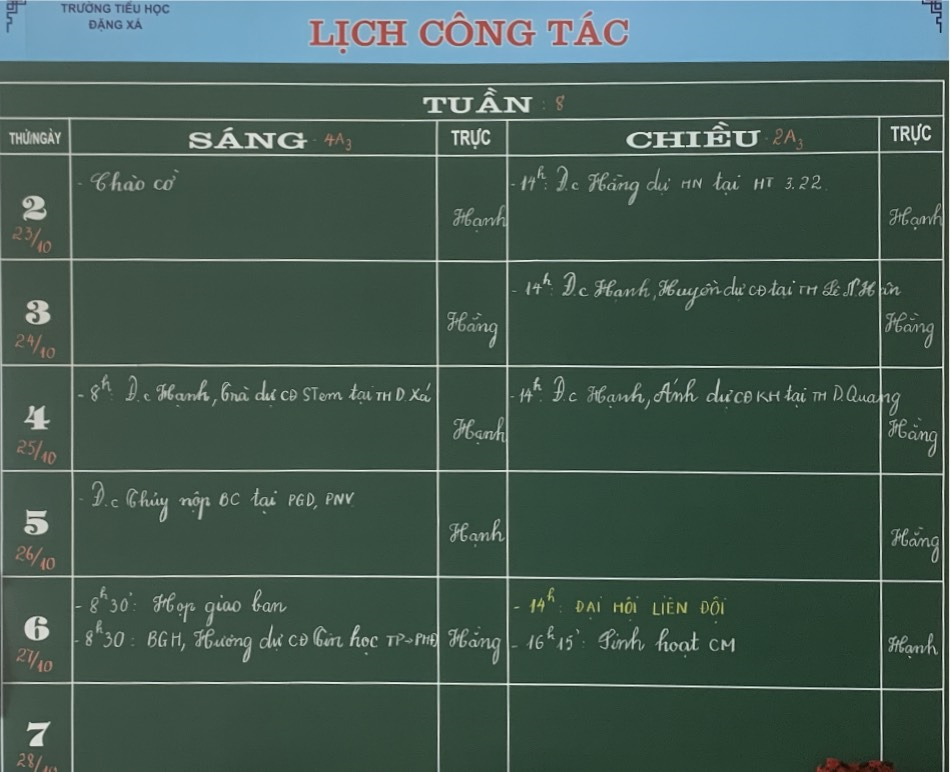 TRƯỜNG TIỂU HỌC
ĐẶNG XÁ
LỊCH CÔNG TÁC
TUẦN : 8
THỨ/NGÀY
SÁNG - 4A3
TRỰC
CHIỀU - 2A3
TRỰC
2
23/10
- Chào cờ
Hạnh
- 14h: Đ.c Hằng dự HN tại HT 3.22
Hạnh
3
24/10
Hằng
- 14h: Đ.c Hạnh, Huyền dự CĐ tại TH Lê N. Hân
Hằng
4
25/10
- 8h: Đ.c Hạnh, Trà dự CĐ STem tại TH D. Xá
Hạnh
- 14h: Đ.c Hạnh, Ánh dự CĐ KH tại TH D. Quang
Hằng
5
26/10
- Đ.c Thúy nộp BC tại PGD, PNV
Hạnh
Hằng
6
27/10
- 8h30': Họp giao ban
- 8h30: BGH, Hương dự CĐ Tin học TP→PHĐ
Hằng
- 14h: ĐẠI HỘI LIÊN ĐỘI
- 16h15': Sinh hoạt CM
Hạnh
7
28/10